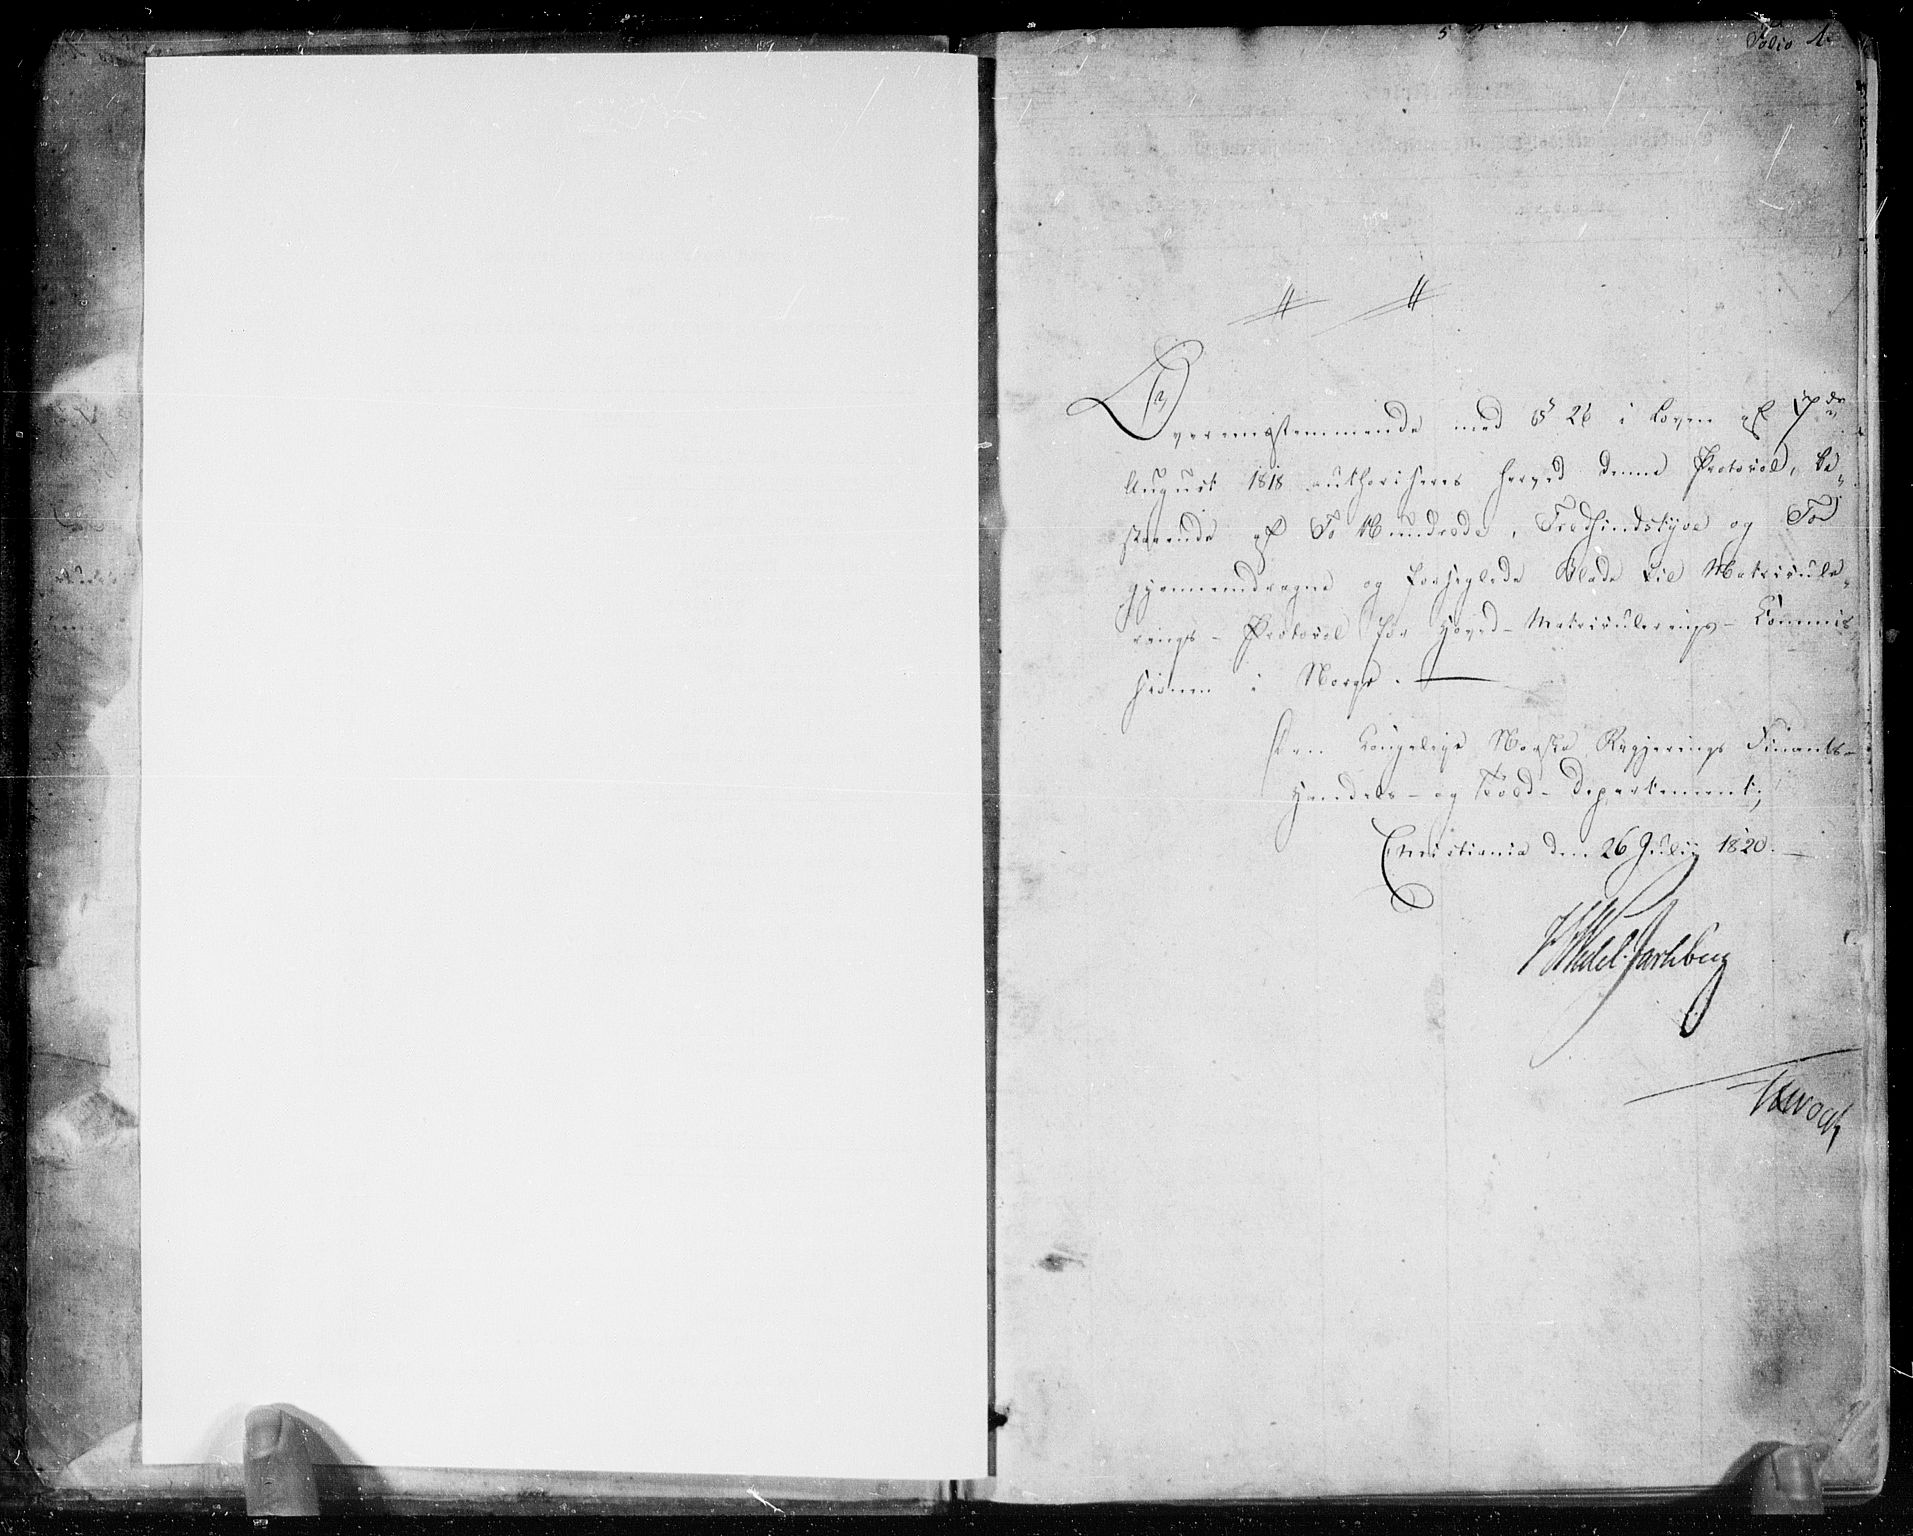 Folio 1.
Overeensstemmende med § 26 i Loven af 17de
August 1818 authoriseres herved denne Protocol, be-
staaende af To Hundrede, Tredsindstyve og To
gjennemdragne og forseglede Blade til Matricule-
rings-Protocol for Hoved-Matriculerings-Commis-
sionen i Norge.
Den Kongelige Norske Regjerings Finants-
Handels- og Told-Departement;
Christiania den 26 Julij 1820.
Wedel Jarlsberg